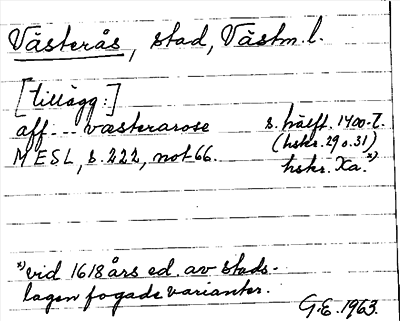 Västerås, stad, Västm. l.
[tillägg:]
aff --- væsterarose s. hälft. 1400-t.
(hskr. 29 o. 31)
MESL, s. 222, not 66. hskr. Xa. x)
x) vid 1618 års ed. av stads-
lagen fogade varianter.
G.E. 1963.